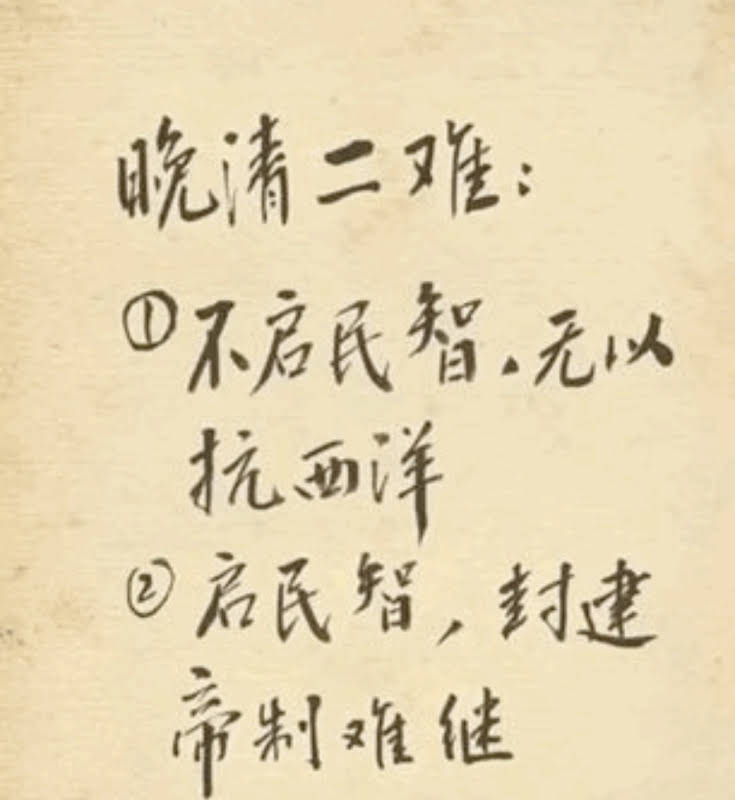 晚清二难：
①不启民智，无以
抗西洋
②启民智，封建
帝制难继